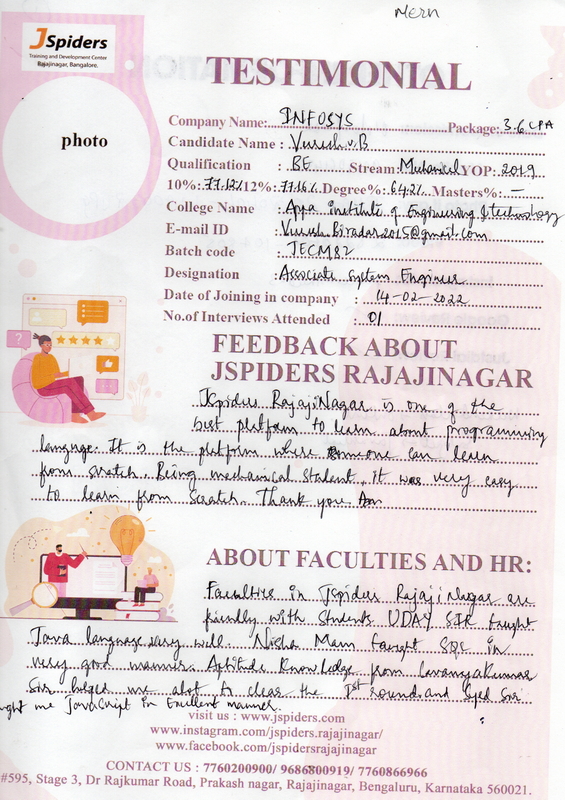 Mern
JSpiders
Training and Development Center
Rajajinagar, Bangalore.
TESTIMONIAL
photo
Company Name: INFOSYS Package: 3.6 CPA
Candidate Name : Viresh.v.B
Qualification : BE Stream: Mechanical YOP: 2019
10%: 77.12% 12%: 77.16% Degree%: 64.2% Masters%: —
College Name : Appa institute of Engineering & technology
E-mail ID : Viresh.Biradar2015@gmail.com
Batch code : JECM82
Designation : Associate System Engineer
Date of Joining in company : 14-02-2022
No.of Interviews Attended : 01
FEEDBACK ABOUT
JSPIDERS RAJAJINAGAR
JSpiders RajajiNagar is one of the
best platform to learn about programming
language. It is the platform where someone can learn
from scratch. Being mechanical student, it was very easy
to learn from Scratch Thank you
ABOUT FACULTIES AND HR:
Faculties in JSpiders RajajiNagar are
friendly with Students UDAY SIR taught
Java language very well Nisha Mam taught SQL in
very good manner. Aptitude Knowledge from Lavanyakumar
Sir helped me alot to clear the 1st round and Syed Sir
ught me JavaScript in Excellent manner.
visit us : www.jspiders.com
www.instagram.com/jspiders.rajajinagar/
www.facebook.com/jspidersrajajinagar
CONTACT US : 7760200900/ 9686800919/ 7760866966
#595, Stage 3, Dr Rajkumar Road, Prakash nagar, Rajajinagar, Bengaluru, Karnataka 560021.